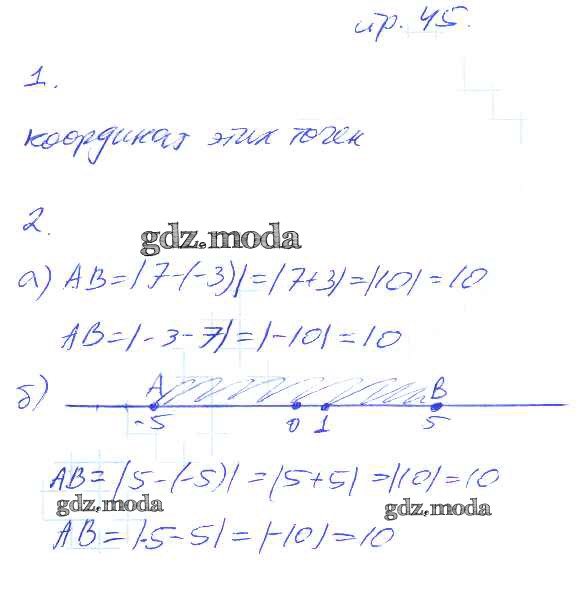 стр. 45.
1.
координат этих точек
2.
gdz.moda
а) AB=|7-(-3)|=|7+3|=|10|=10
AB=|-3-7|=|-10|=10
б) A B
-5 0 1 5
AB=|5-(-5)|=|5+5|=|10|=10
gdz.moda gdz.moda
AB=|-5-5|=|-10|=10